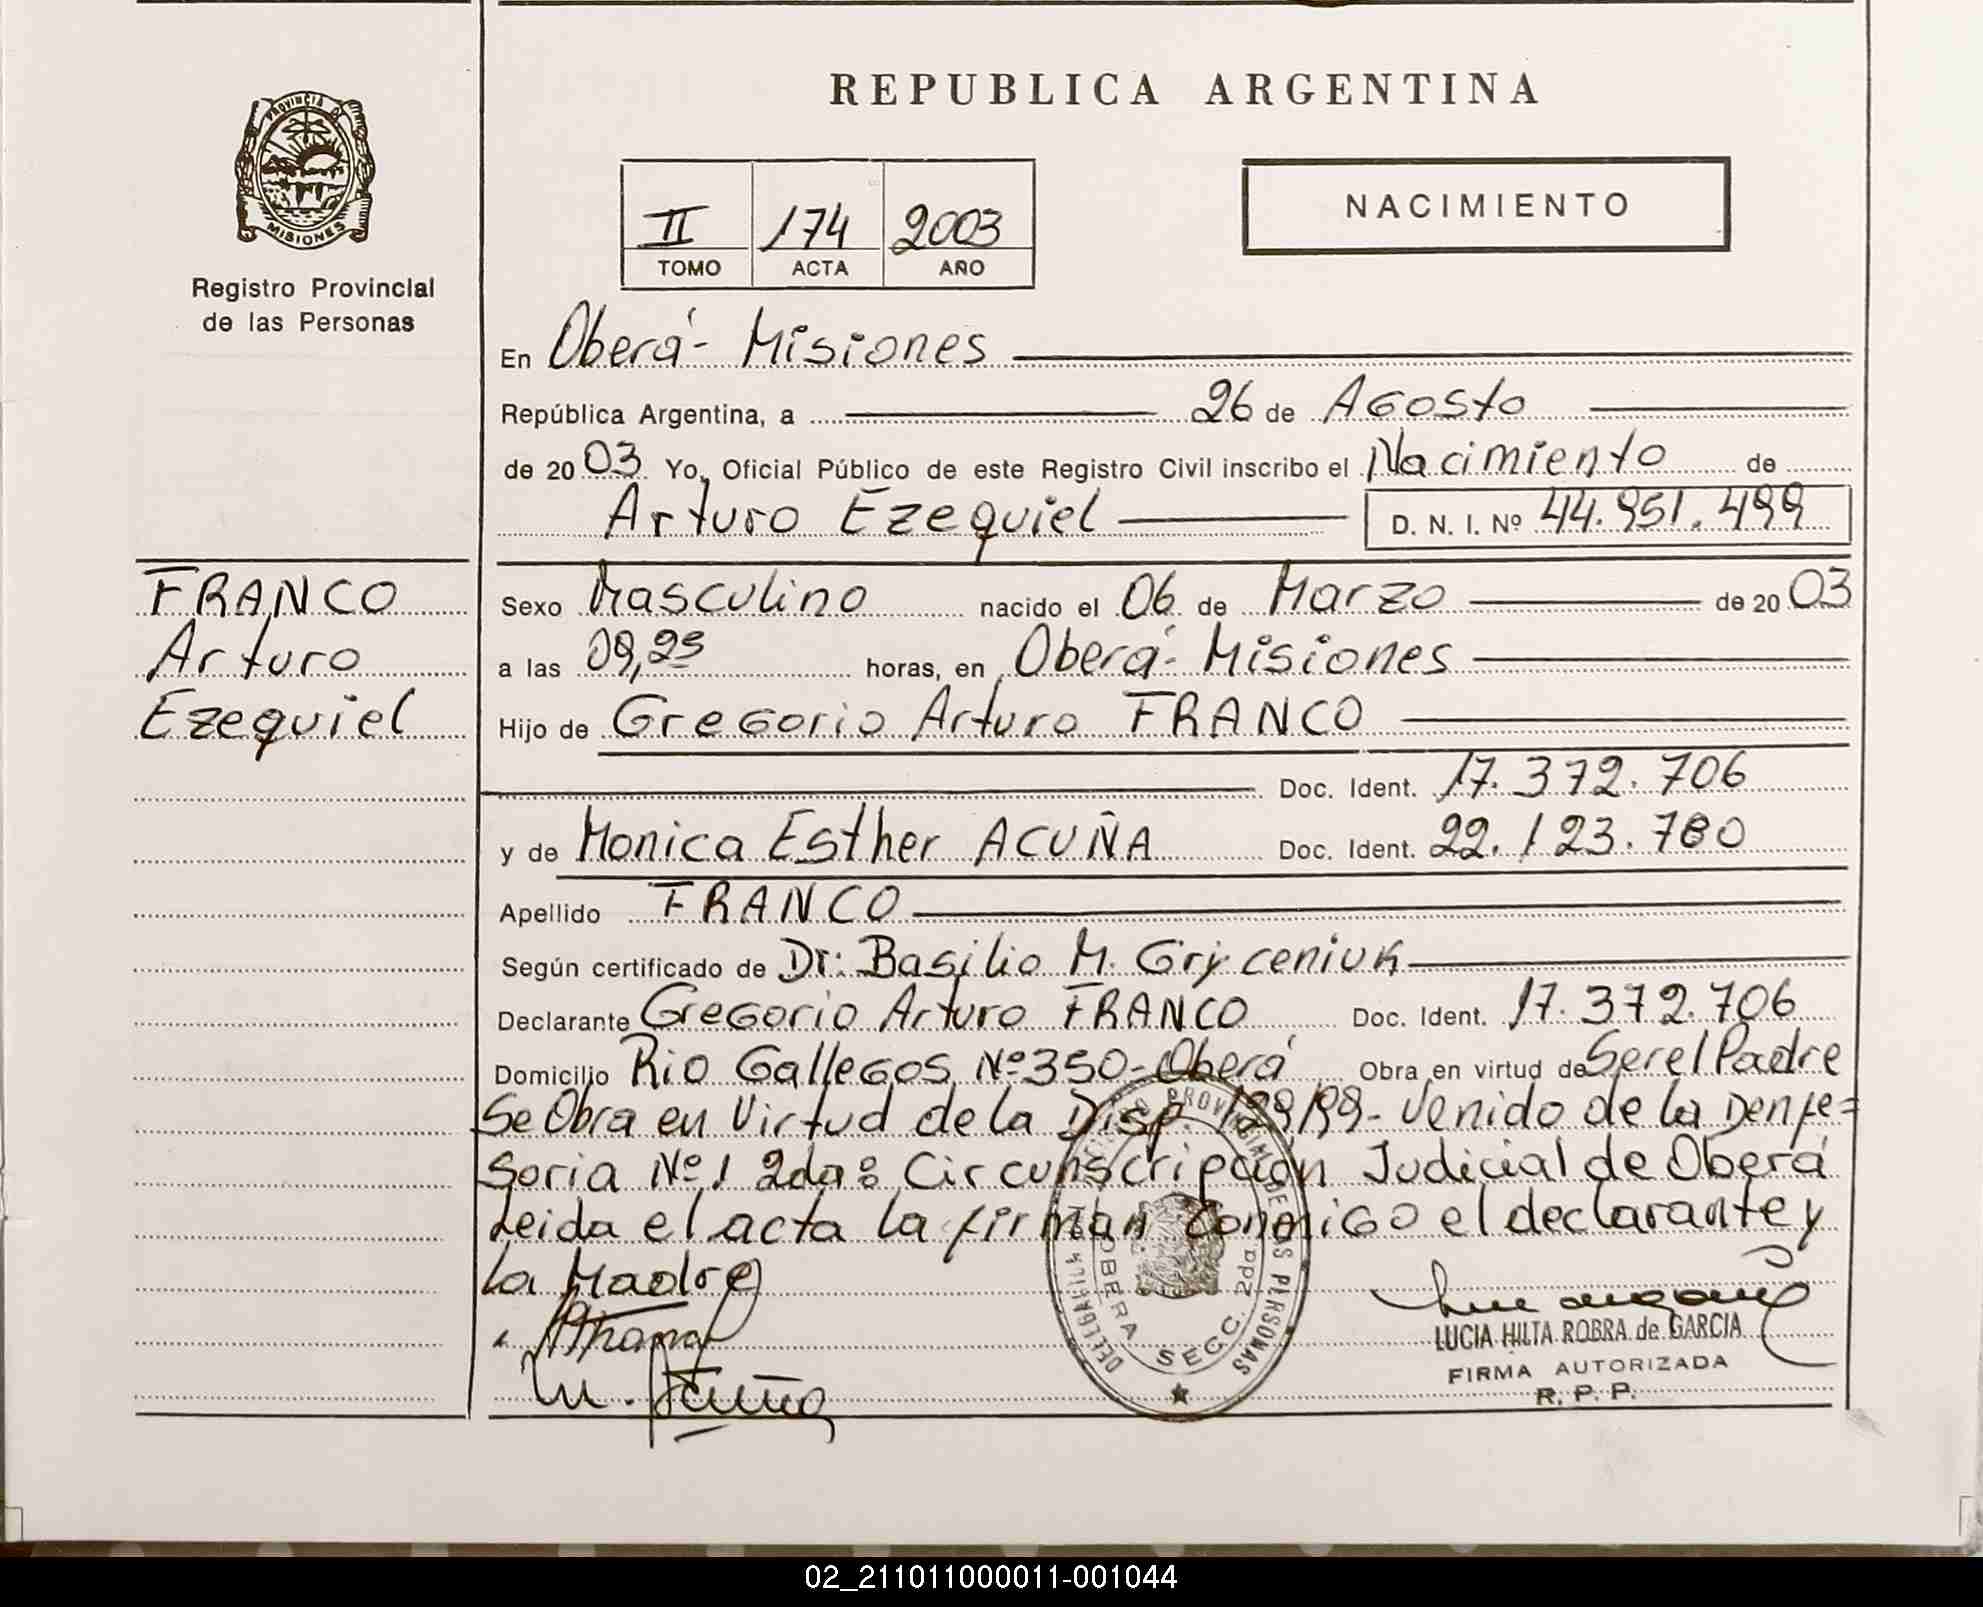 REPUBLICA ARGENTINA
PROVINCIA DE
MISIONES
Registro Provincial
de las Personas
II 174 2003
TOMO ACTA AÑO
NACIMIENTO
En Oberá - Misiones
República Argentina, a 26 de Agosto
de 2003 Yo, Oficial Público de este Registro Civil inscribo el Nacimiento de
Arturo Ezequiel D. N. I. Nº 44.951.499
FRANCO
Arturo
Ezequiel
Sexo Masculino nacido el 06 de Marzo de 2003
a las 09,25 horas, en Oberá - Misiones
Hijo de Gregorio Arturo FRANCO
Doc. Ident. 17.372.706
y de Monica Esther ACUÑA Doc. Ident. 22.123.780
Apellido FRANCO
Según certificado de Dr: Basilio M. Gryceniuk
Declarante Gregorio Arturo FRANCO Doc. Ident. 17.372.706
Domicilio Rio Gallegos Nº 350 - Oberá Obra en virtud de Ser el Padre
Se Obra en Virtud de la Disp. 199/99 - Venido de la Denfe=
soria Nº 1 2da: Circunscripción Judicial de Oberá
Leida el acta la firman conmigo el declarante y
la Madre
M. Acuña
OBERA SECC. 2da
LUCIA HILTA ROBRA de GARCIA
FIRMA AUTORIZADA
R. P. P.
02_211011000011-001044